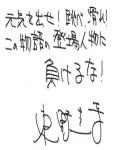 元気を出せ！跳べ、滑れ！
この物語の登場人物に
負けるな！
東野圭吾